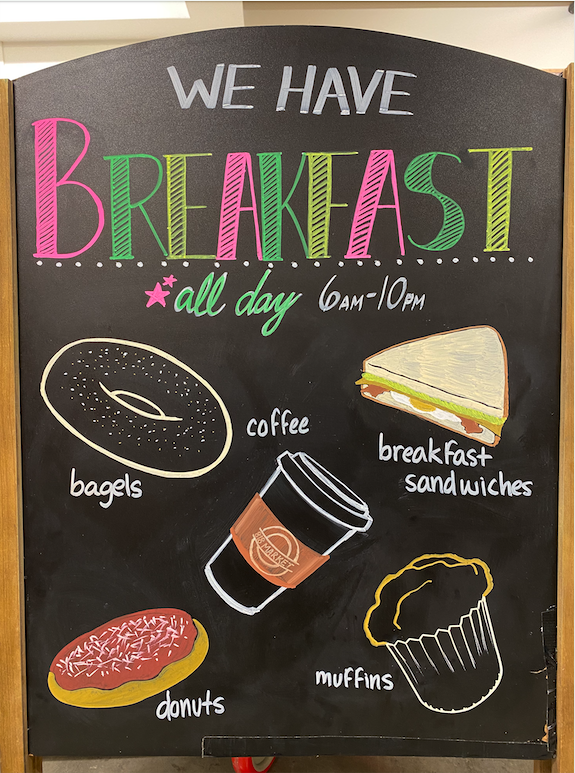 WE HAVE
BREAKFAST
all day 6AM-10PM
coffee
breakfast
sandwiches
bagels
MARKET
muffins
donuts